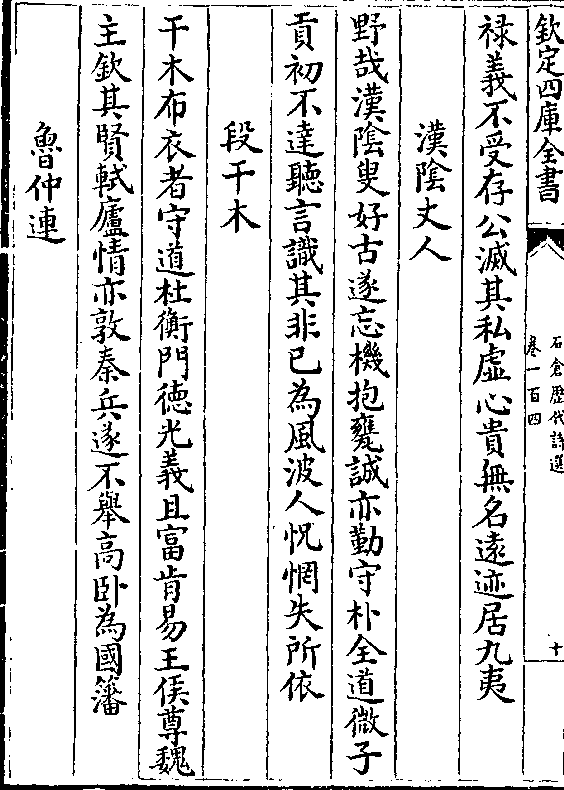 欽定四庫全書
石倉歴代詩選
卷一百四
十
祿義不受存公滅其私虛心貴無名遠迹居九夷
漢陰丈人
野哉漢陰叟好古遂忘機抱甕誠亦勤守朴全道微子
貢初不達聽言識其非已為風波人怳惘失所依
段干木
干木布衣者守道杜衡門徳光義且富肯易王侯尊魏
主欽其賢軾廬情亦敦秦兵遂不舉高卧為國籓
魯仲連